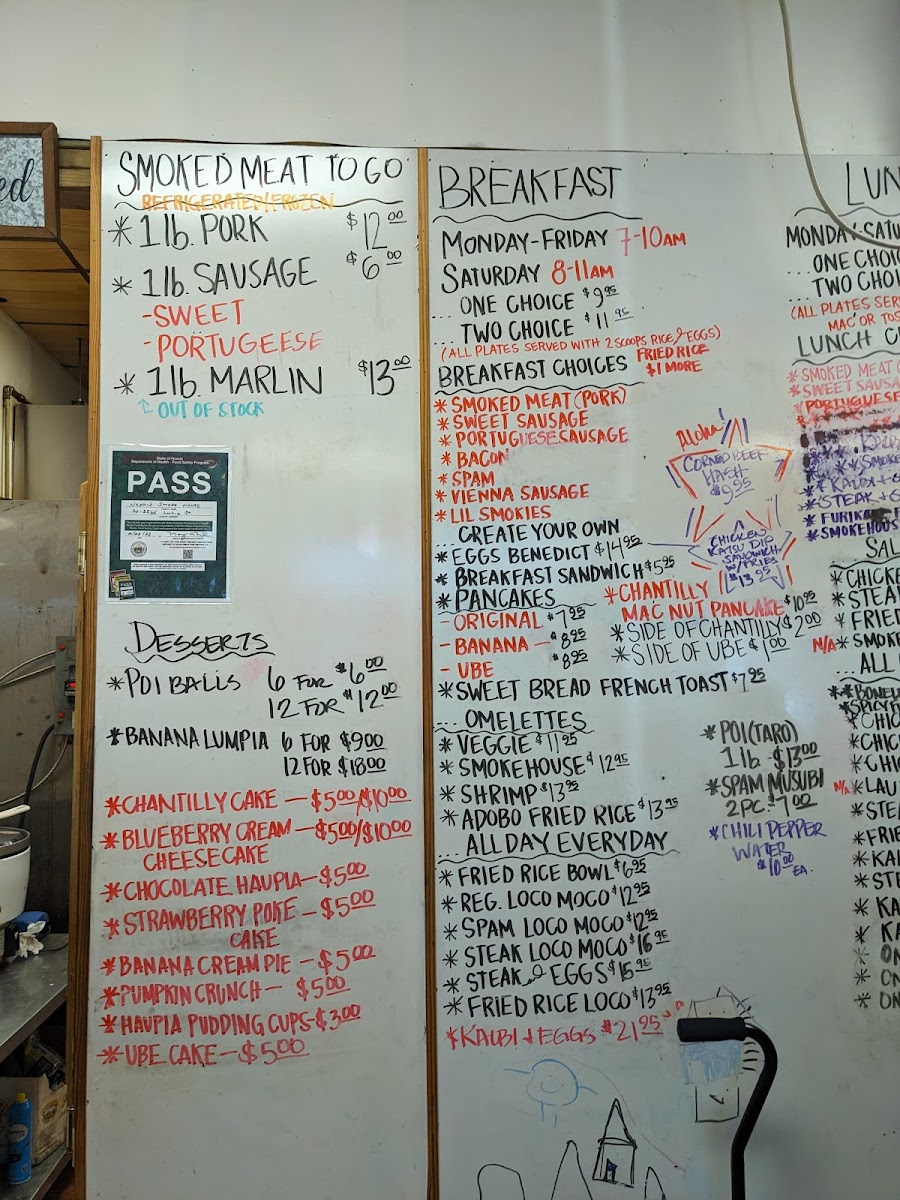 ed
SMOKED MEAT TO GO
REFRIGERATED/FROZEN
* 1 lb. PORK $12.00
* 1 lb. SAUSAGE $6.00
- SWEET
- PORTUGEESE
* 1 lb. MARLIN $13.00
OUT OF STOCK
State of Hawaii
Department of Health - Food Safety Program
PASS
DESSERTS
* POI BALLS 6 FOR $6.00
12 FOR $12.00
* BANANA LUMPIA 6 FOR $9.00
12 FOR $18.00
* CHANTILLY CAKE — $5.00/$10.00
* BLUEBERRY CREAM — $5.00/$10.00
CHEESECAKE
* CHOCOLATE HAUPIA — $5.00
* STRAWBERRY POKE — $5.00
CAKE
* BANANA CREAM PIE — $5.00
* PUMPKIN CRUNCH — $5.00
* HAUPIA PUDDING CUPS - $3.00
* UBE CAKE — $5.00
BREAKFAST
MONDAY-FRIDAY 7-10AM
SATURDAY 8-11AM
... ONE CHOICE $9.95
... TWO CHOICE $11.95
(ALL PLATES SERVED WITH 2 SCOOPS RICE & EGGS)
BREAKFAST CHOICES
FRIED RICE
$1 MORE
* SMOKED MEAT (PORK)
* SWEET SAUSAGE
* PORTUGUESE SAUSAGE
* BACON
* SPAM
* VIENNA SAUSAGE
* LIL SMOKIES
Aloha
CORNED BEEF
HASH
$9.95
CHICKEN
KATSU DIP
SANDWICH
W/FRIES
$13.95
... CREATE YOUR OWN
* EGGS BENEDICT $14.95
* BREAKFAST SANDWICH $5.95
* PANCAKES
- ORIGINAL $7.95
- BANANA — $8.95
- UBE $8.95
* CHANTILLY
MAC NUT PANCAKE $10.95
* SIDE OF CHANTILLY $2.00
* SIDE OF UBE $1.00
* SWEET BREAD FRENCH TOAST $7.95
... OMELETTES
* VEGGIE $11.95
* SMOKEHOUSE $12.95
* SHRIMP $13.95
* ADOBO FRIED RICE $13.95
... ALL DAY EVERYDAY
* FRIED RICE BOWL $6.95
* REG. LOCO MOCO $12.95
* SPAM LOCO MOCO $12.95
* STEAK LOCO MOCO $16.95
* STEAK & EGGS $15.95
* FRIED RICE LOCO $13.95
* KALBI & EGGS $21.95
* POI (TARO)
1 lb - $13.00
* SPAM MUSUBI
2PC. $7.00
* CHILI PEPPER
WATER
$10.00 EA.
LUN
MONDAY-SATU
... ONE CHOIC
... TWO CHOI
(ALL PLATES SER
MAC OR TOS
LUNCH C
* SMOKED MEAT (
* SWEET SAUSA
* PORTUGUESE
* SMOKE
* KALBI + G
* STEAK + G
* FURIK
* SMOKEHOUS
SAL
* CHICKE
* STEA
* FRIED
N/A * SMOKE
... ALL
** BONEL
* SPICY
* CHIC
* CHIC
* CHIC
N/A * LAU
* STEA
* FRIE
* KAL
* STE
* KA
* KA
* ON
* ON
* ON